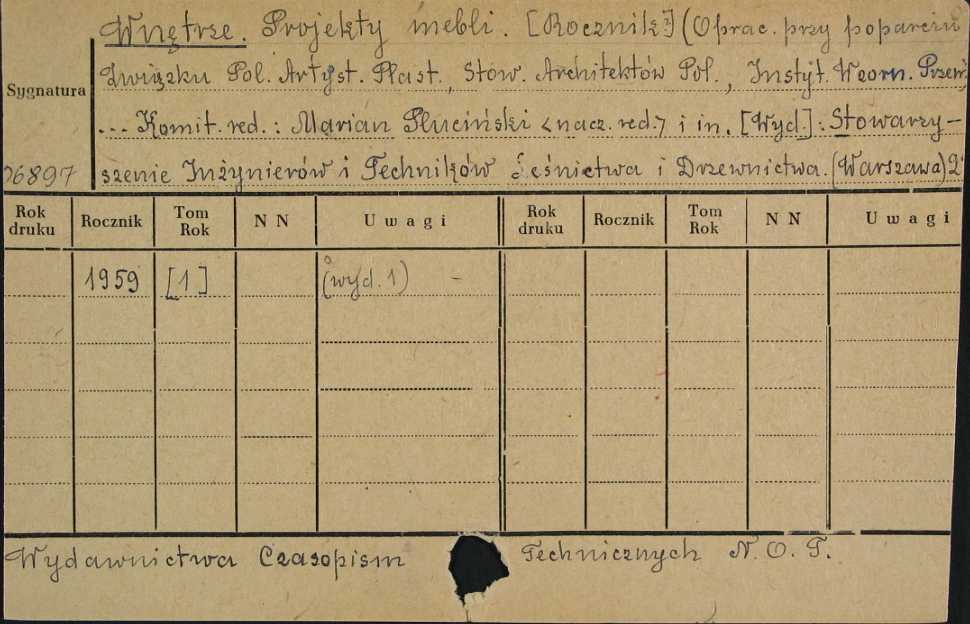 Wnętrze. Projekty mebli. [Rocznik] (Oprac. przy poparciu
Związku Pol. Artyst. Plast., Stow. Architektów Pol., Instyt. Wzorn. Przem.
Sygnatura
... Komit. red.: Marian Pluciński <nacz. red.> i in. [Wyd]: Stowarzy-
szenie Inżynierów i Techników Leśnictwa i Drzewnictwa. (Warszawa)
06897
Rok druku Rocznik Tom Rok NN Uwagi Rok druku Rocznik Tom Rok NN Uwagi
1959 [1] (wyd. 1) -
Wydawnictwa Czasopism Technicznych N.O.T.